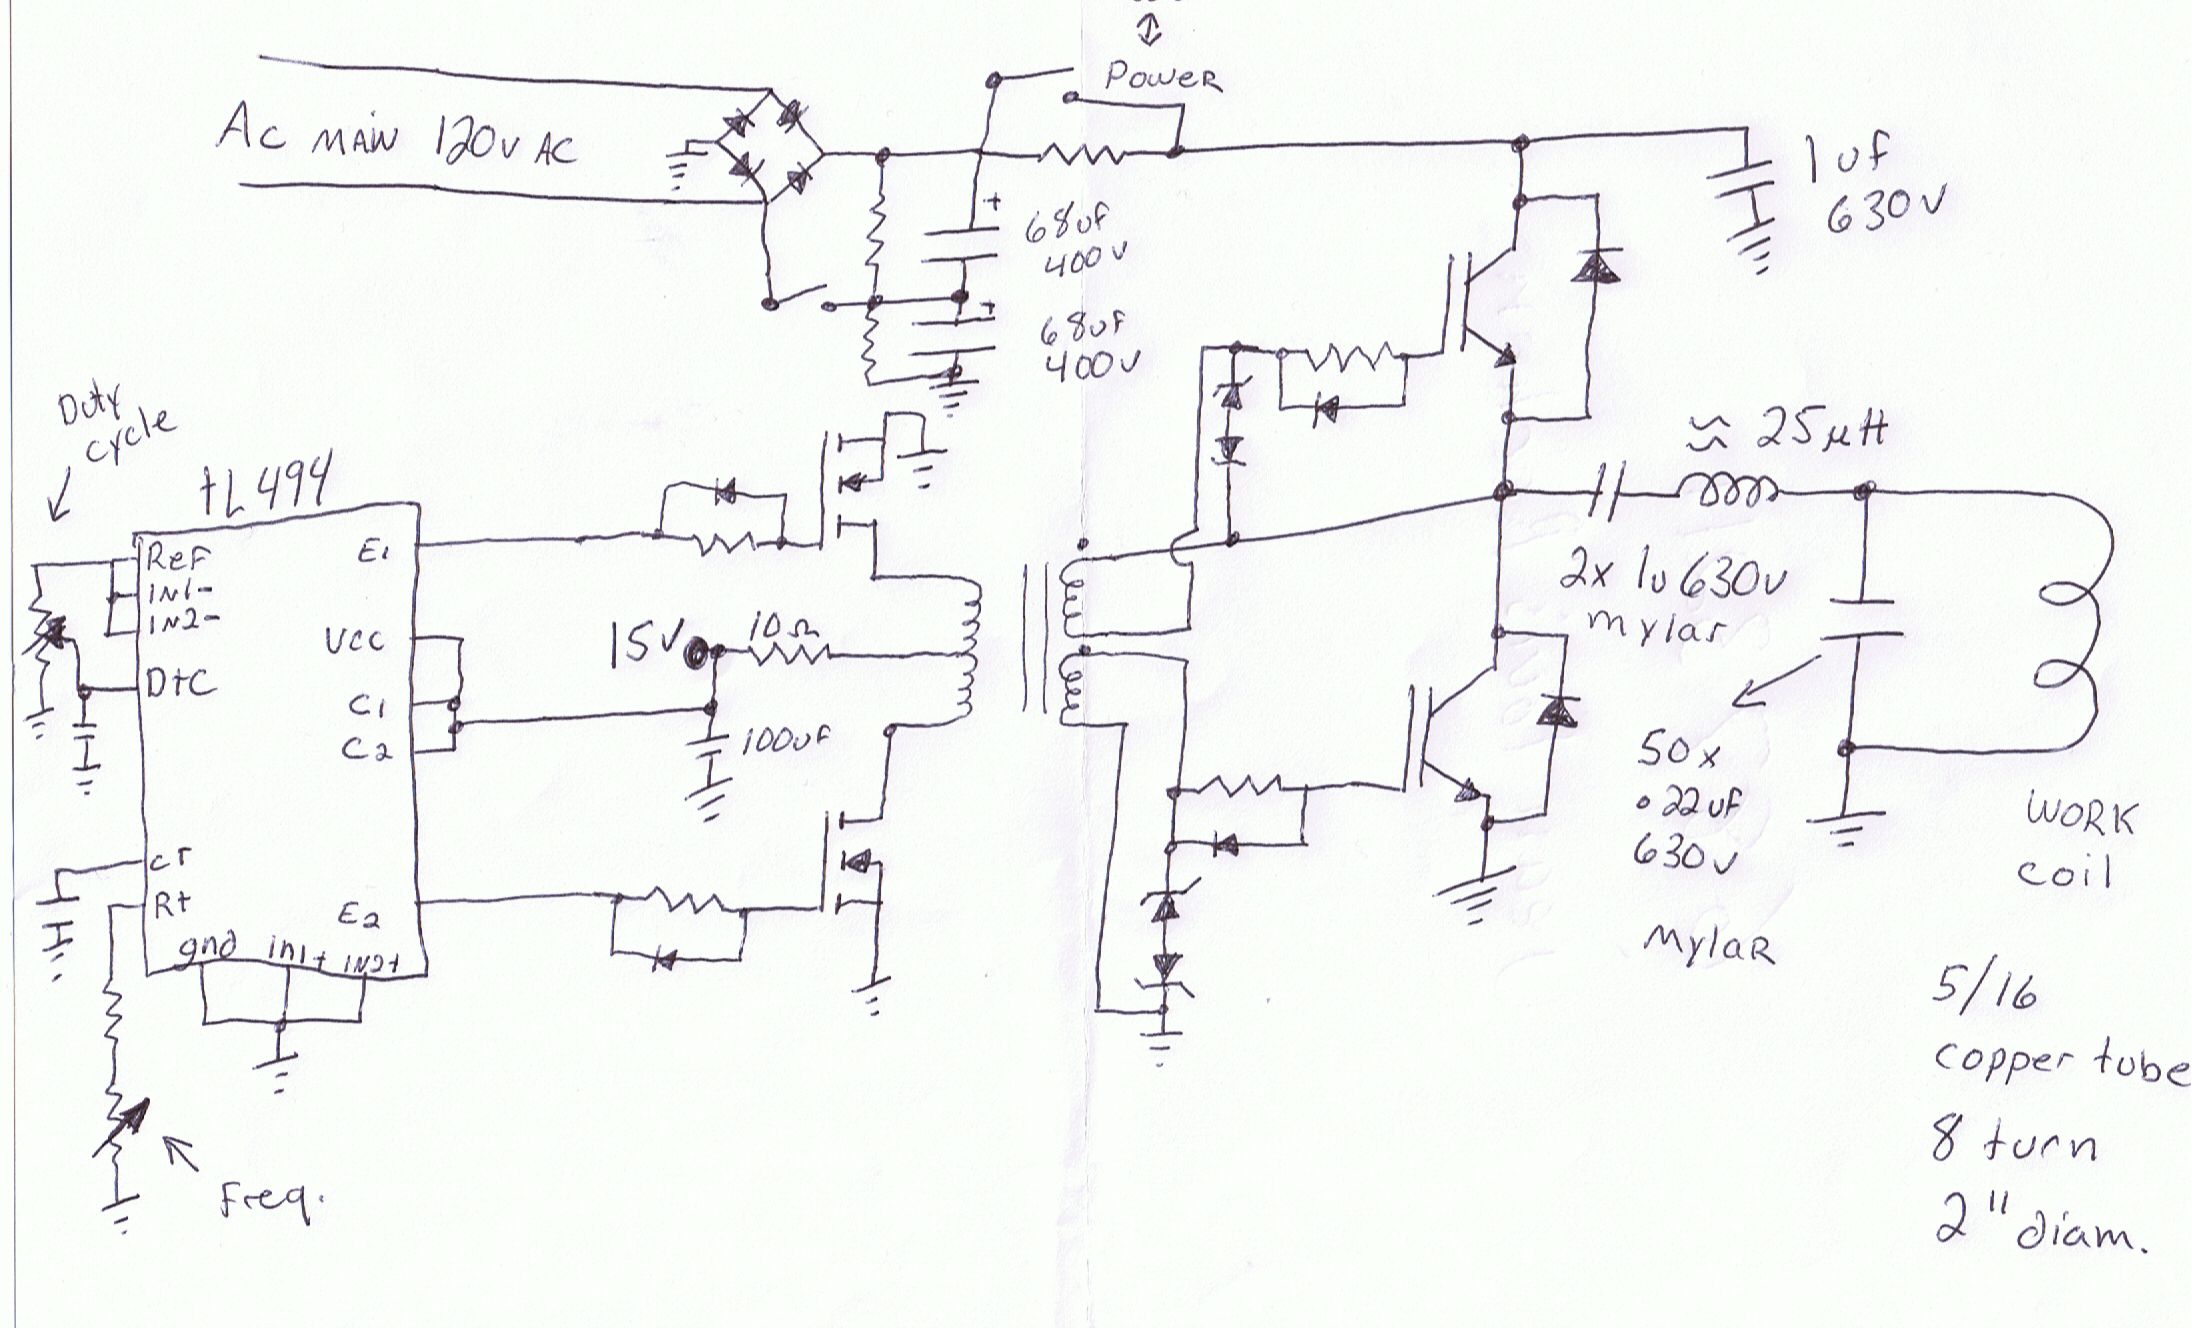 Power
Ac main 120v AC
+
68uf
400v
+
68uf
400v
1uf
630v
Duty
cycle
tL494
Ref
IN1-
IN2-
DtC
CT
Rt
gnd
in1+
IN2+
E1
VCC
C1
C2
E2
15v
10Ω
100uf
≈ 25μH
2x 1u 630v
mylar
50x
.22uf
630v
Mylar
WORK
coil
5/16
copper tube
8 turn
2" diam.
Freq.